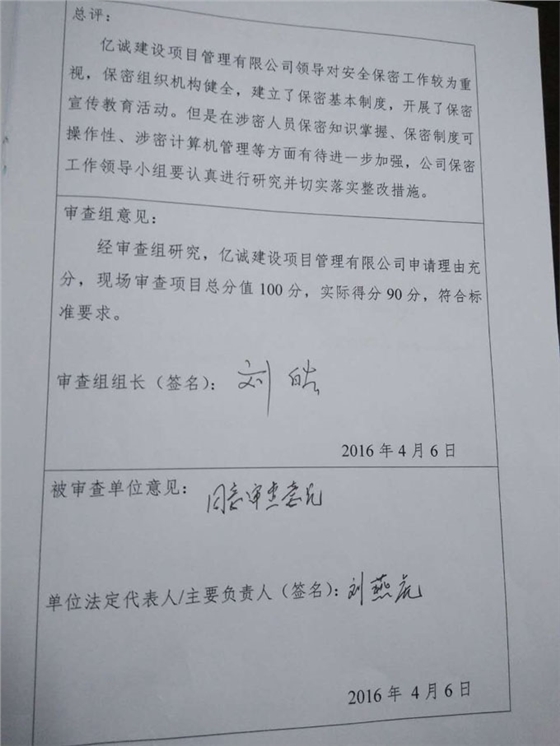 总评：
亿诚建设项目管理有限公司领导对安全保密工作较为重
视，保密组织机构健全，建立了保密基本制度，开展了保密
宣传教育活动。但是在涉密人员保密知识掌握、保密制度可
操作性、涉密计算机管理等方面有待进一步加强，公司保密
工作领导小组要认真进行研究并切实落实整改措施。
审查组意见：
经审查组研究，亿诚建设项目管理有限公司申请理由充
分，现场审查项目总分值 100 分，实际得分 90 分，符合标
准要求。
审查组组长（签名）：刘皓
2016 年 4 月 6 日
被审查单位意见：同意审查意见
单位法定代表人/主要负责人（签名）：刘燕
2016 年 4 月 6 日